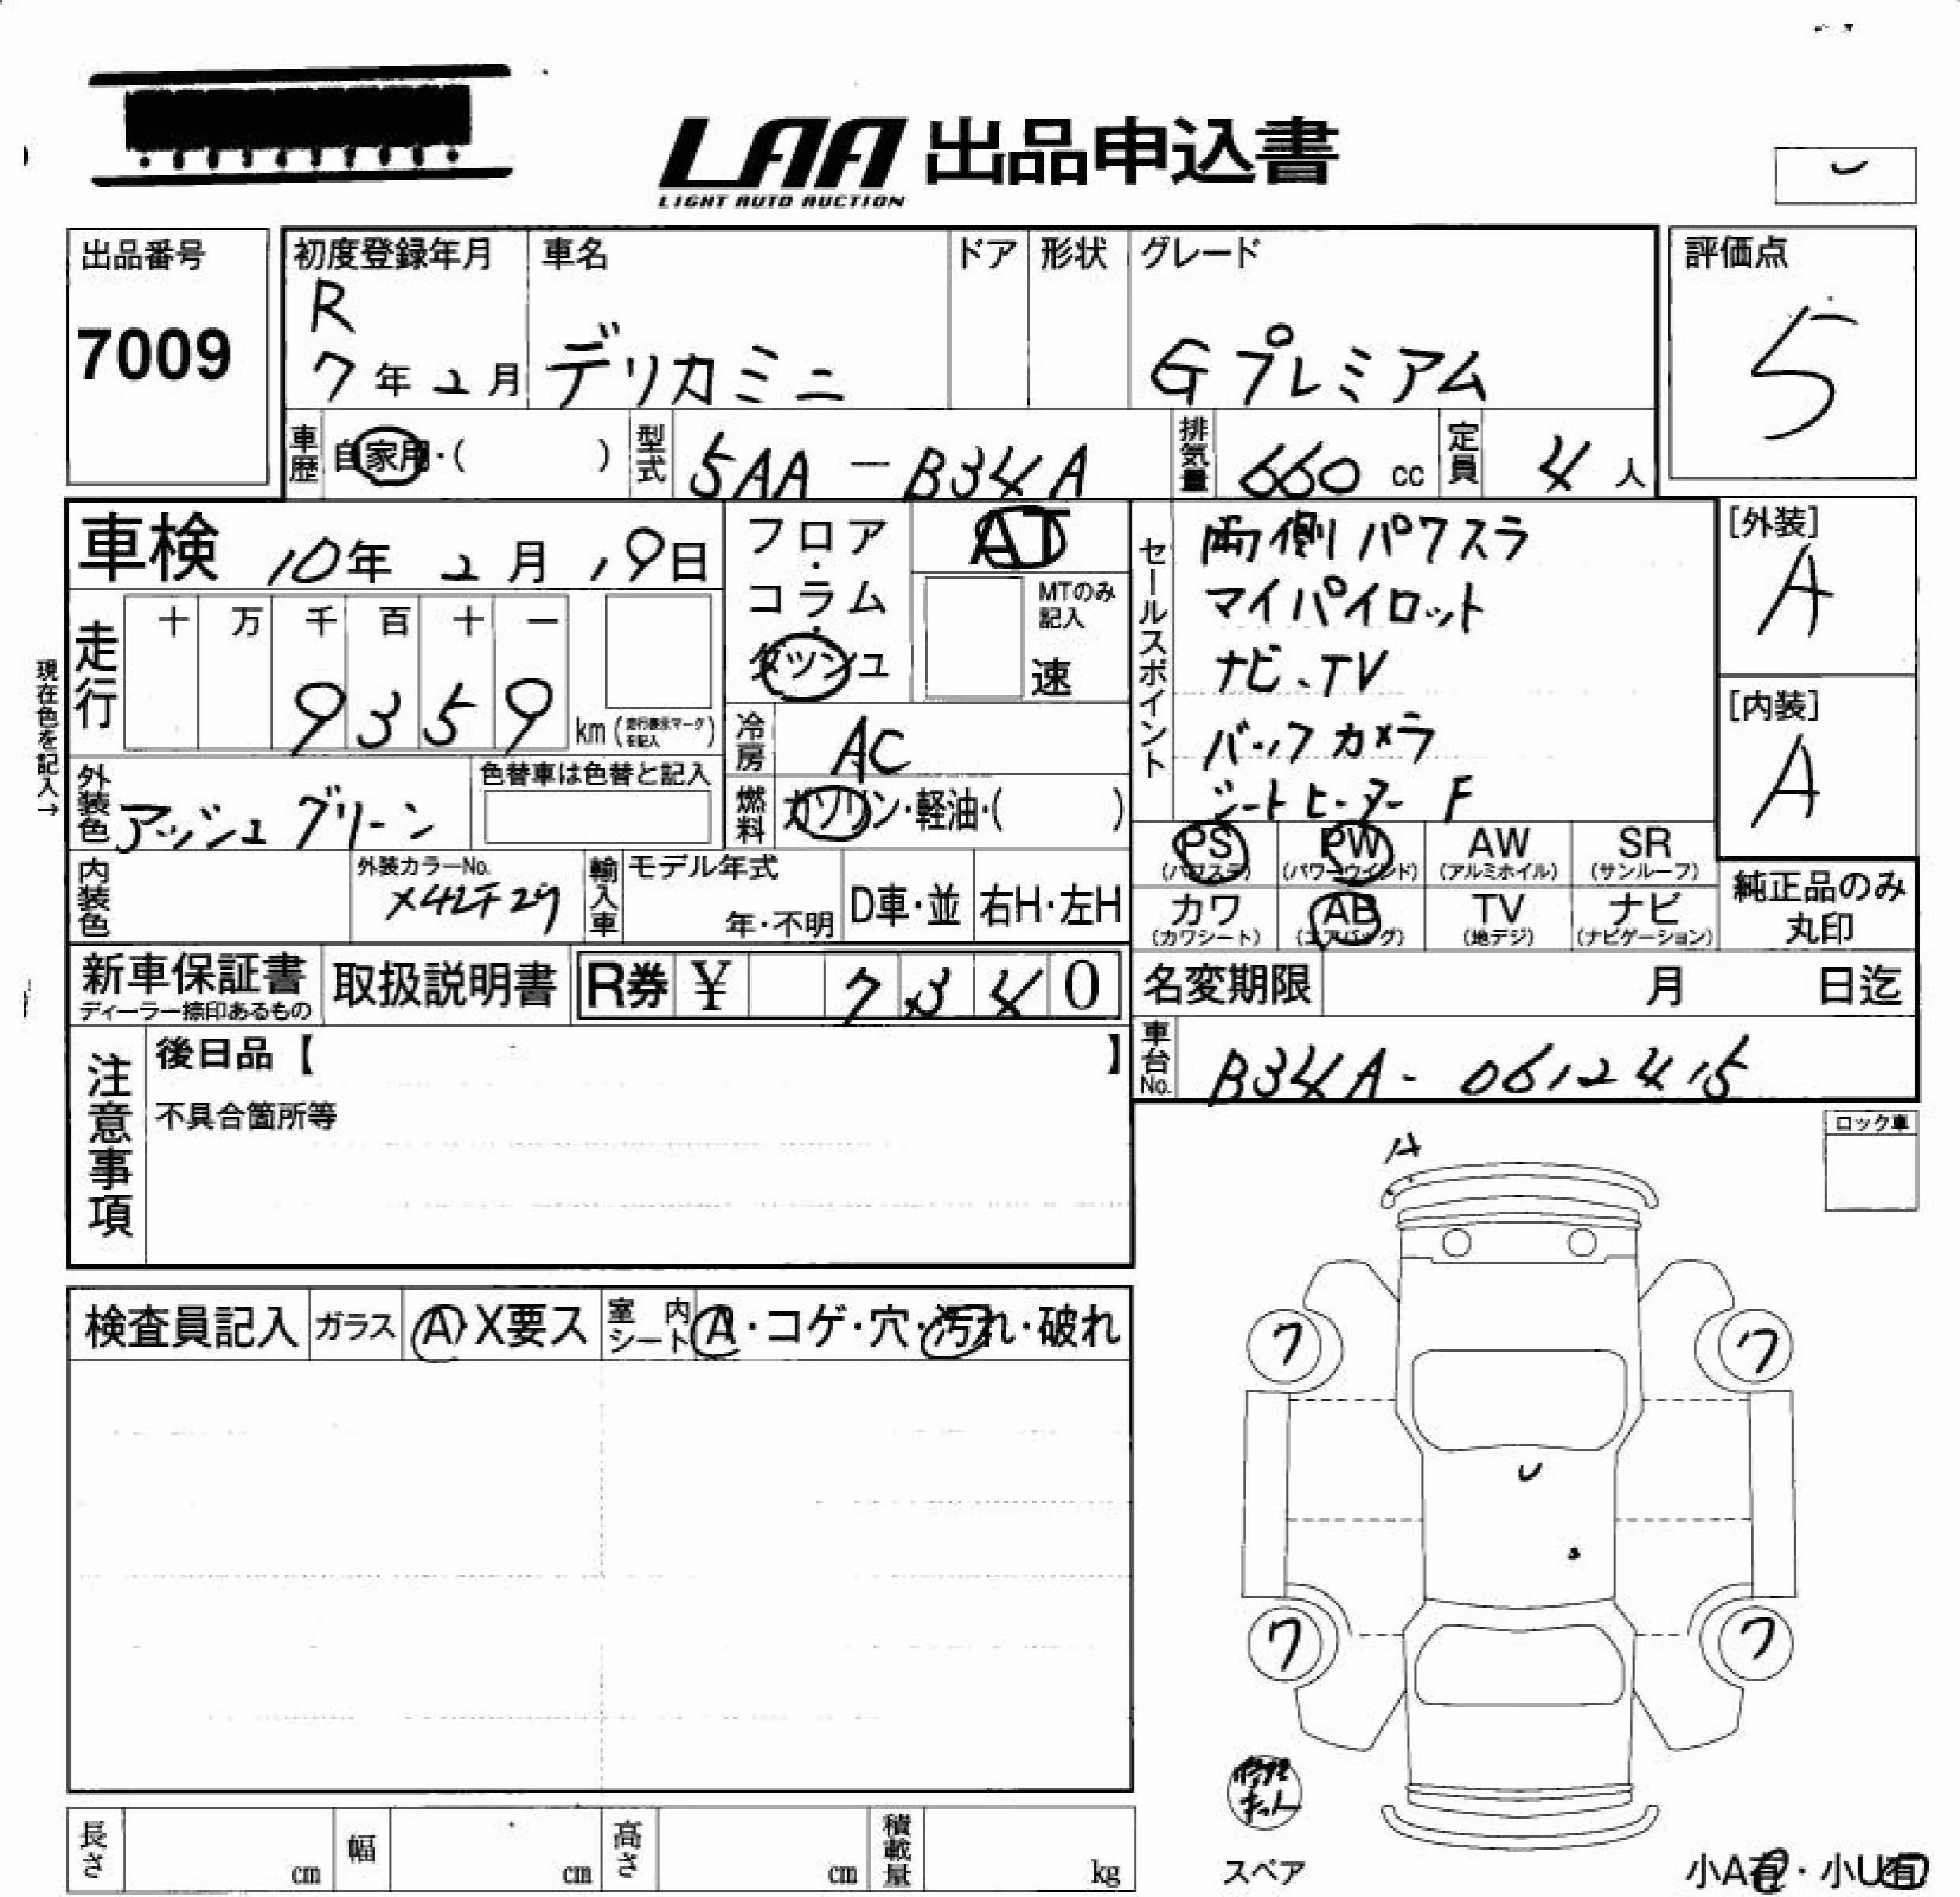 LAA 出品申込書
LIGHT AUTO AUCTION
出品番号
7009
初度登録年月
R
7年2月
車名
デリカミニ
ドア
形状
グレード
Gプレミアム
評価点
5
車歴
自家用・( )
型式
5AA-B34A
排気量
660 cc
定員
4人
車検 10年2月19日
フロア・コラム・ダッシュ
AT
MTのみ記入
速
セールスポイント
両側パワスラ
マイパイロット
ナビ、TV
バックカメラ
シートヒーター F
[外装]
A
[内装]
A
現在色を記入→
走行
十 万 千 百 十 一
9 3 5 9
km (走行表示マークを記入)
冷房
AC
外装色
アッシュグリーン
色替車は色替と記入
燃料
ガソリン・軽油・( )
PS (パワステ)
PW (パワーウインド)
AW (アルミホイル)
SR (サンルーフ)
内装色
外装カラーNo.
輸入車
モデル年式
年・不明
D車・並
右H・左H
カワ (カワシート)
AB (エアバッグ)
TV (地デジ)
ナビ (ナビゲーション)
純正品のみ
丸印
新車保証書
ディーラー捺印あるもの
取扱説明書
R券 ¥ 7 3 4 0
名変期限
月 日迄
車台No.
B34A-0612415
注意事項
後日品【 】
不具合箇所等
ロック車
A
検査員記入
ガラス
A・X要ス
室内シート
A・コゲ・穴・汚れ・破れ
ワ
ワ
U
ワ
ワ
修理キット
スペア
長さ cm
幅 cm
高さ cm
積載量 kg
小A有・小U有